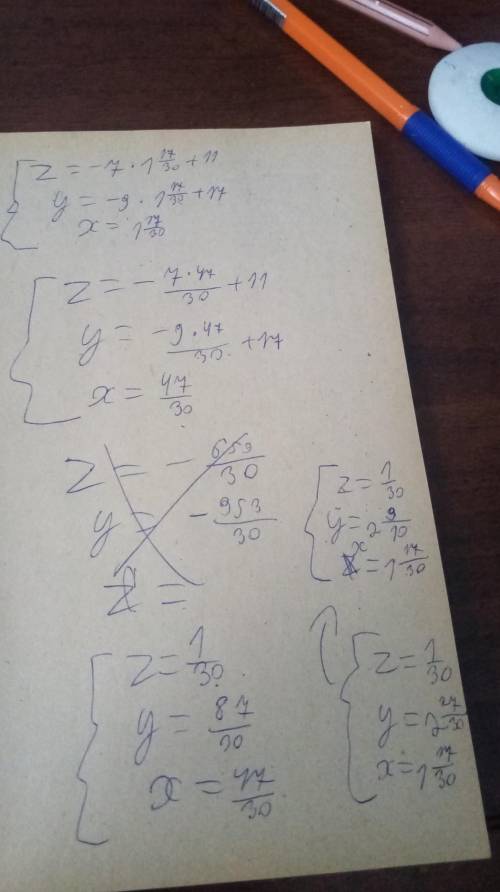 z = -7 · 1 17/30 + 11
y = -9 · 1 17/30 + 17
x = 1 17/30
z = - 7·47/30 + 11
y = -9·47/30 + 17
x = 47/30
z = - 659/30
y = - 953/30
z =
z = 1/30
y = 2 9/10
x = 1 17/30
z = 1/30
y = 87/30
x = 47/30
z = 1/30
y = 2 27/30
x = 1 17/30